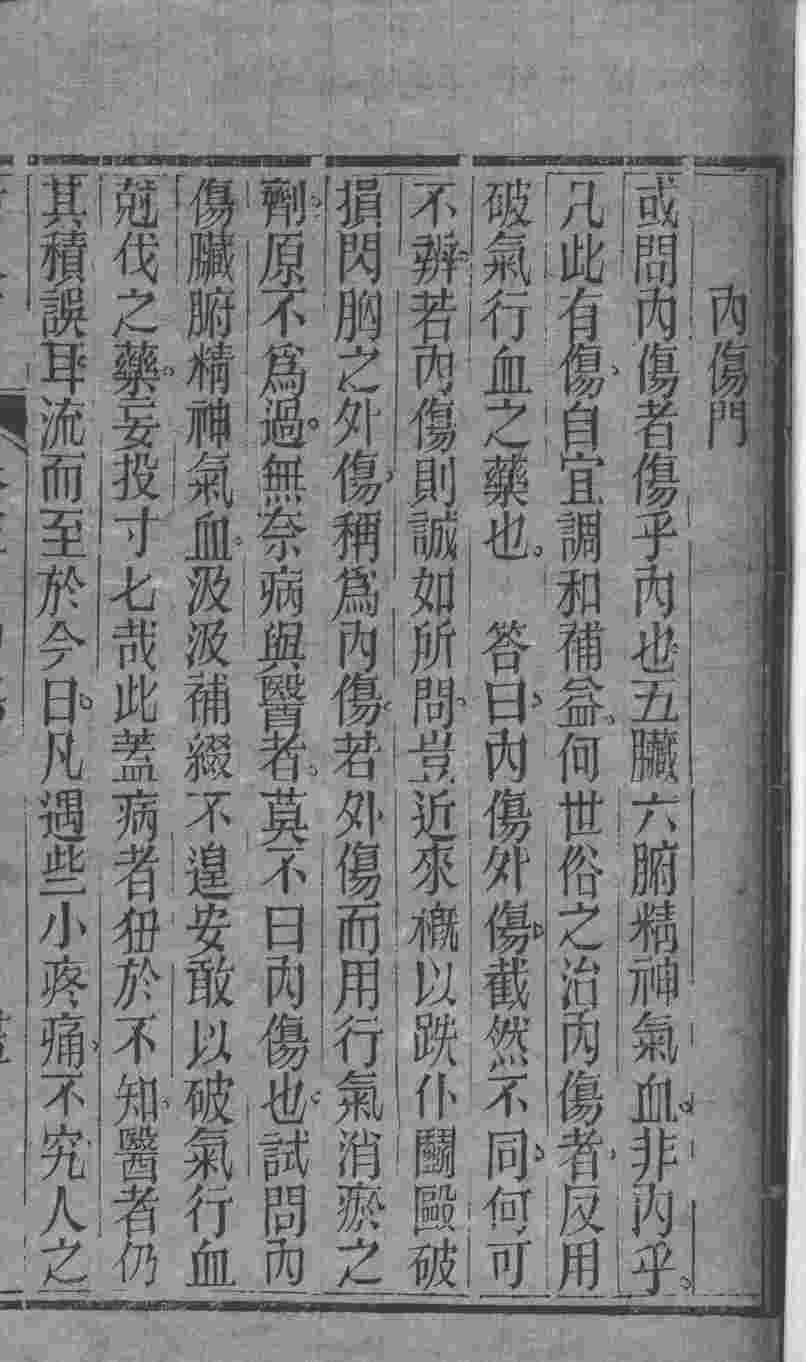 內傷門
或問內傷者傷乎內也五臟六腑精神氣血非內乎
凡此有傷自宜調和補益何世俗之治內傷者反用
破氣行血之藥也　答曰內傷外傷截然不同何可
不辨若內傷則誠如所問豈近來概以跌仆鬭毆破
損閃胸之外傷稱爲內傷若外傷而用行氣消瘀之
劑原不爲過無奈病與醫者莫不曰內傷也試問內
傷臟腑精神氣血汲汲補綴不遑安敢以破氣行血
尅伐之藥妄投寸七哉此蓋病者狃於不知醫者仍
其積誤耳流而至於今日凡遇些小疼痛不究人之